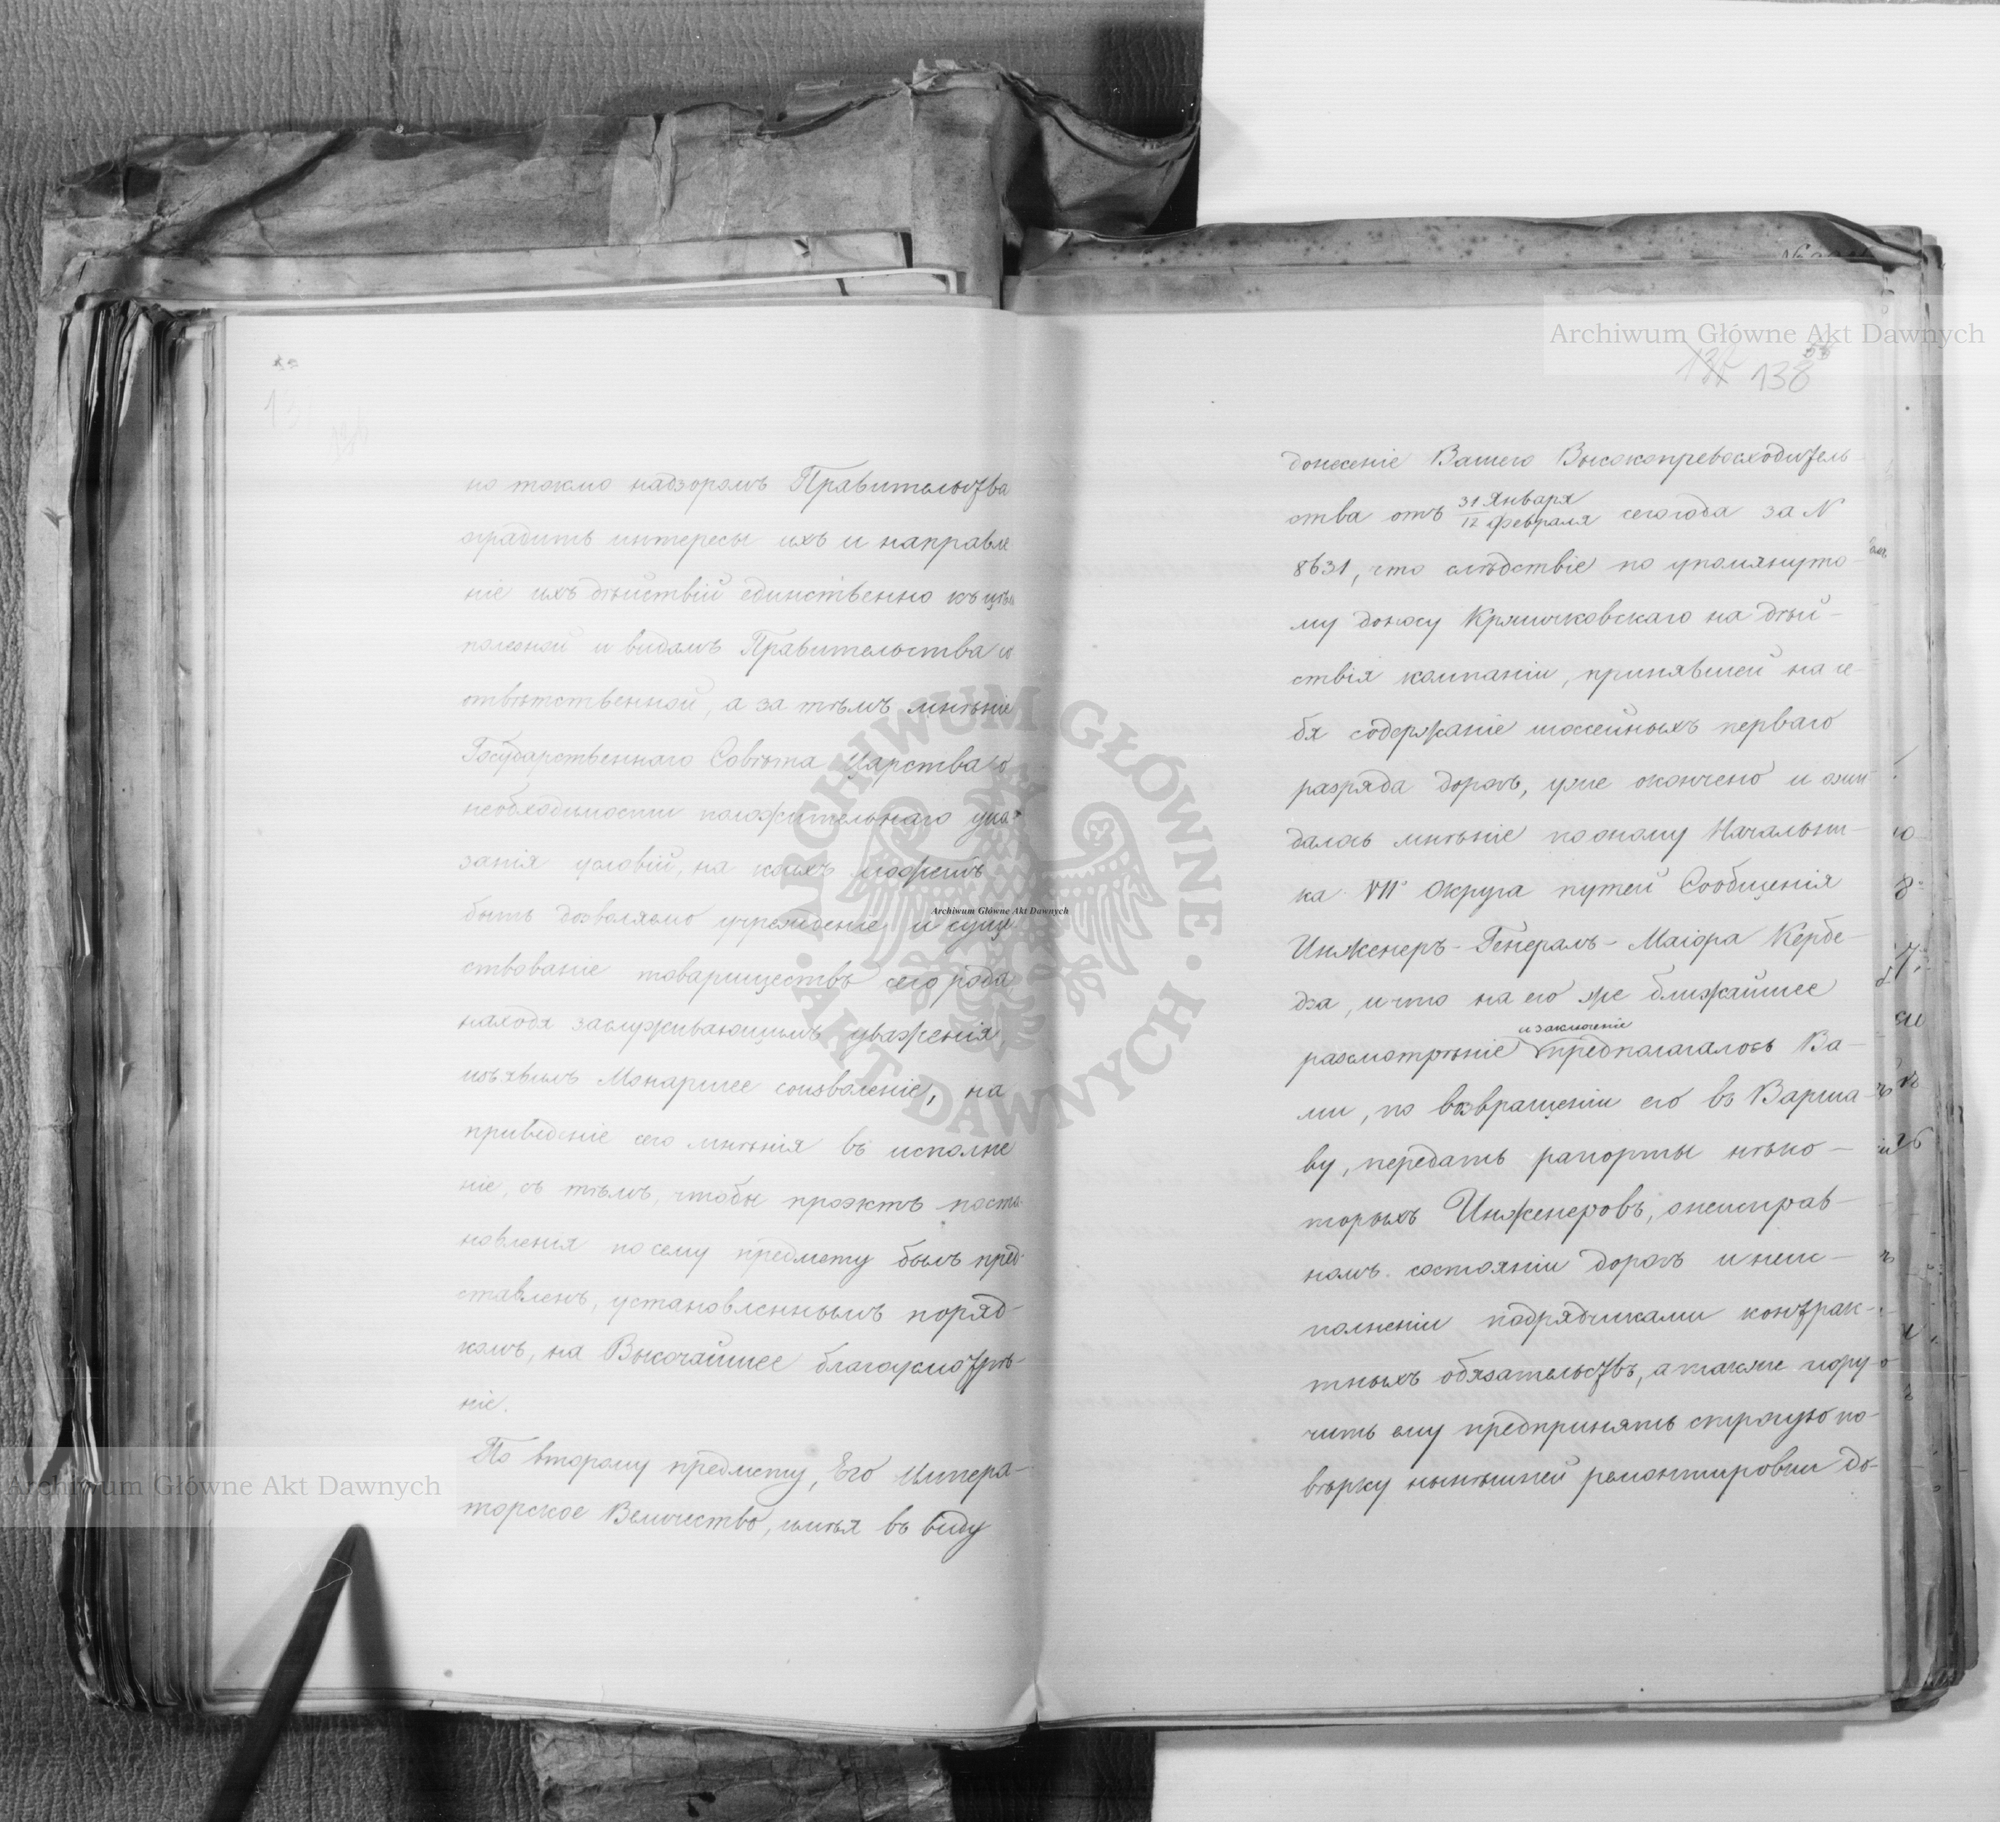 но токмо надзоромъ Правительства
оградить интересы ихъ и направле
ніе ихъ дѣйствій единственно къ цѣли
полезной и видамъ Правительства со
отвѣтственной, а за тѣмъ мнѣніе
Государственнаго Совѣта Царства о
необходимости положительнаго ука-
занія условій, на коихъ можетъ
быть дозволяемо учрежденіе и суще
ствованіе товариществъ сего рода
находя заслуживающимъ уваженія,
изъявилъ Монаршее соизволеніе, на
приведеніе сего мнѣнія въ исполне
ніе, съ тѣмъ, чтобы проэктъ поста-
новленія по сему предмету былъ пред-
ставленъ, установленнымъ поряд-
комъ, на Высочайшее благоусмотрѣ-
ніе.
По второму предмету, Его Импера-
торское Величество, имѣя въ виду
138
донесеніе Вашего Высокопревосходитель-
ства отъ 31 Января / 12 февраля сего года за N
8631, что слѣдствіе по упомянуто-
му доносу на дѣй-
ствія компаніи, принявшей на се-
бя содержаніе шоссейныхъ перваго
разряда дорогъ, уже окончено и ожи-
далось мнѣніе по оному Начальни-
ка VII Округа путей Сообщенія
Инженеръ-Генералъ-Маіора Кербе-
дза, и что на его же ближайшее
разсмотрѣніе и заключеніе предполагалось Ва-
ми, по возвращеніи его въ Варша-
ву, передать рапорты нѣко-
торыхъ Инженеровъ, о неисправ-
номъ состояніи дорогъ и неис-
полненіи подрядчиками контрак-
тныхъ обязательствъ, а также пору-
чить ему предпринять строгую по-
вѣрку нынѣшней ремонтировки до-
Archiwum Główne Akt Dawnych
Archiwum Główne Akt Dawnych
Archiwum Główne Akt Dawnych
ARCHIWUM GŁÓWNE AKT DAWNYCH